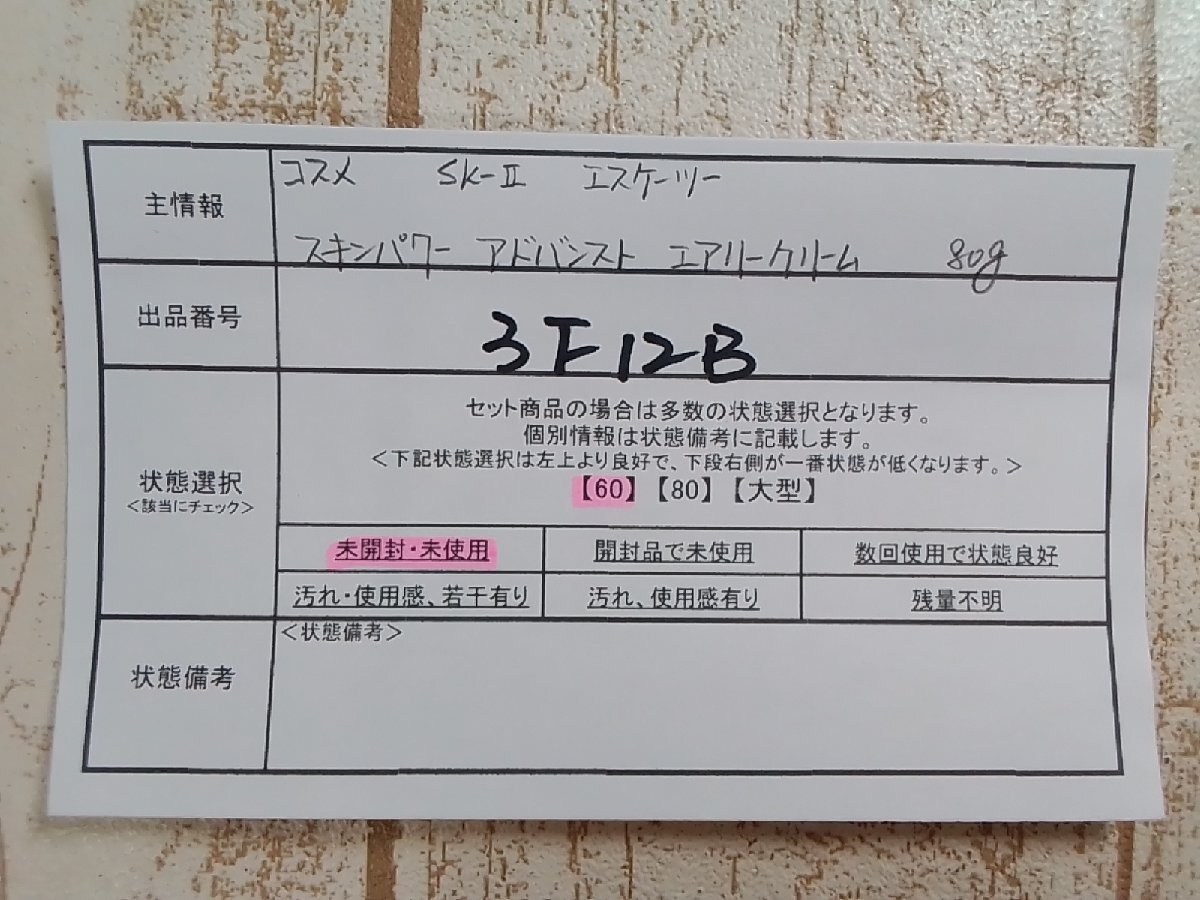 主情報
コスメ SK-II エスケーツー
スキンパワー アドバンスト エアリークリーム 80g
出品番号
3F12B
状態選択
＜該当にチェック＞
セット商品の場合は多数の状態選択となります。
個別情報は状態備考に記載します。
＜下記状態選択は左上より良好で、下段右側が一番状態が低くなります。＞
【60】【80】【大型】
未開封・未使用 開封品で未使用 数回使用で状態良好
汚れ・使用感、若干有り 汚れ、使用感有り 残量不明
状態備考
＜状態備考＞